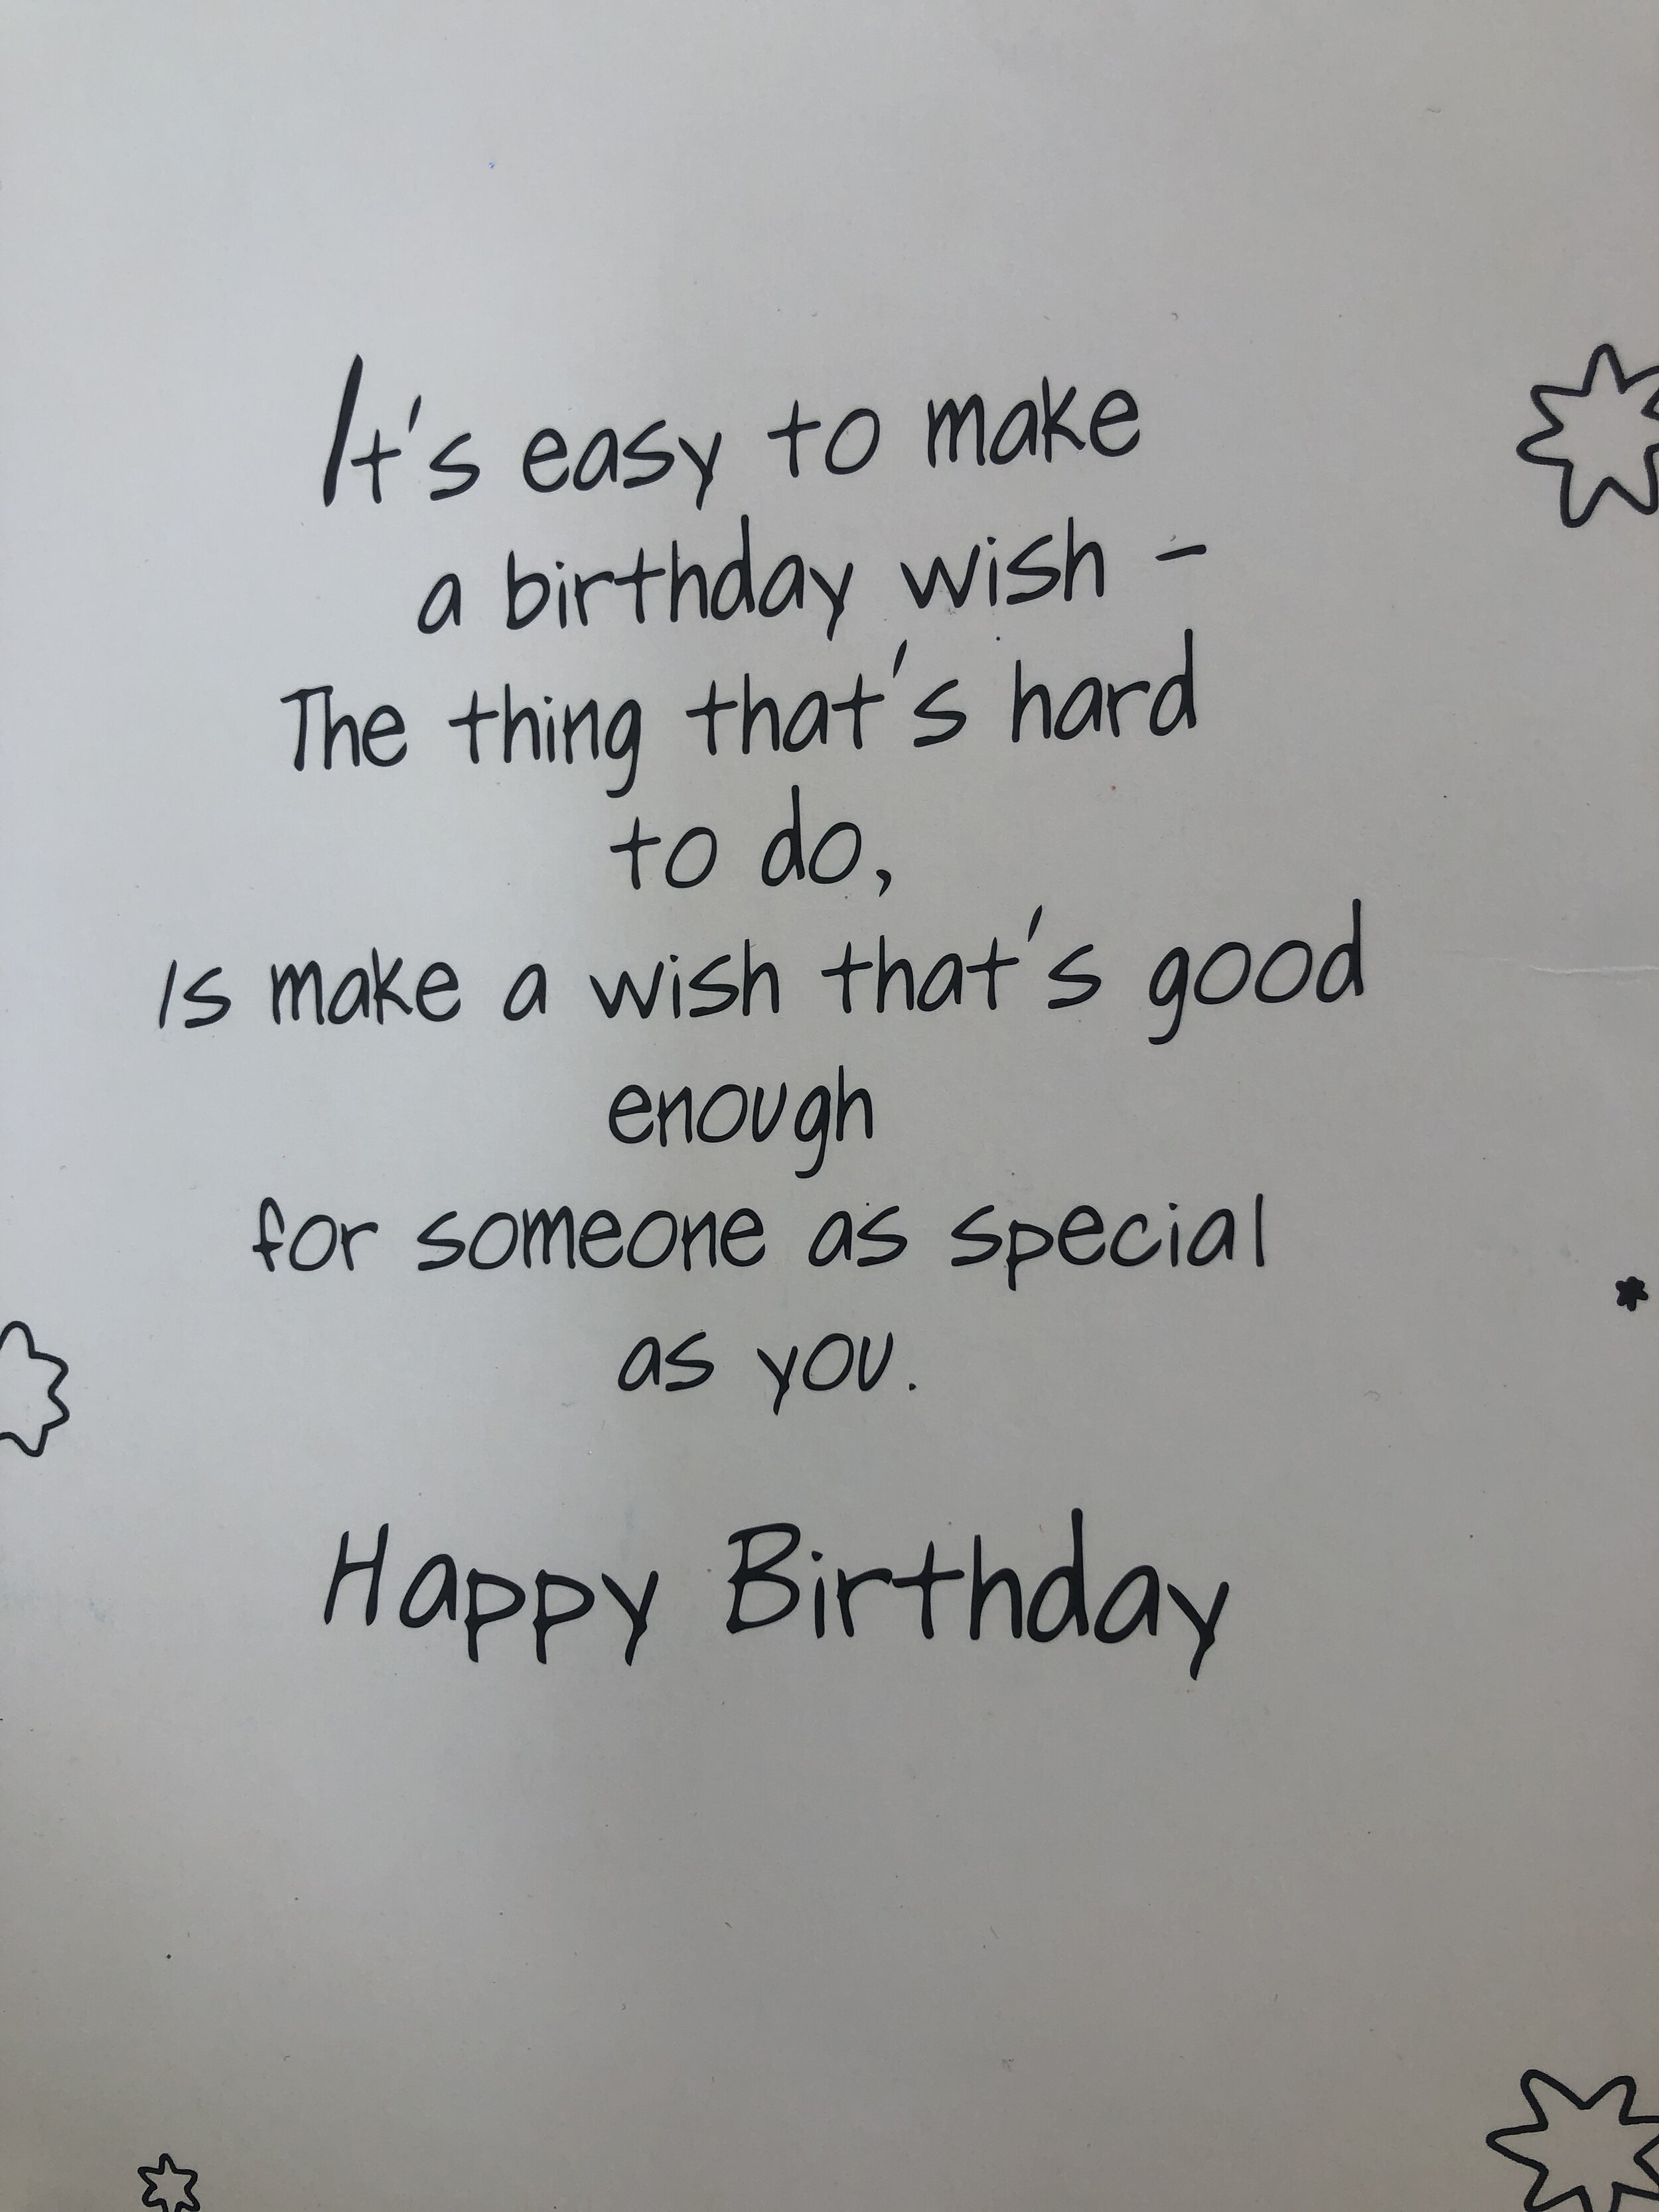 It's easy to make
a birthday wish -
The thing that's hard
to do,
Is make a wish that's good
enough
for someone as special
as you.
Happy Birthday